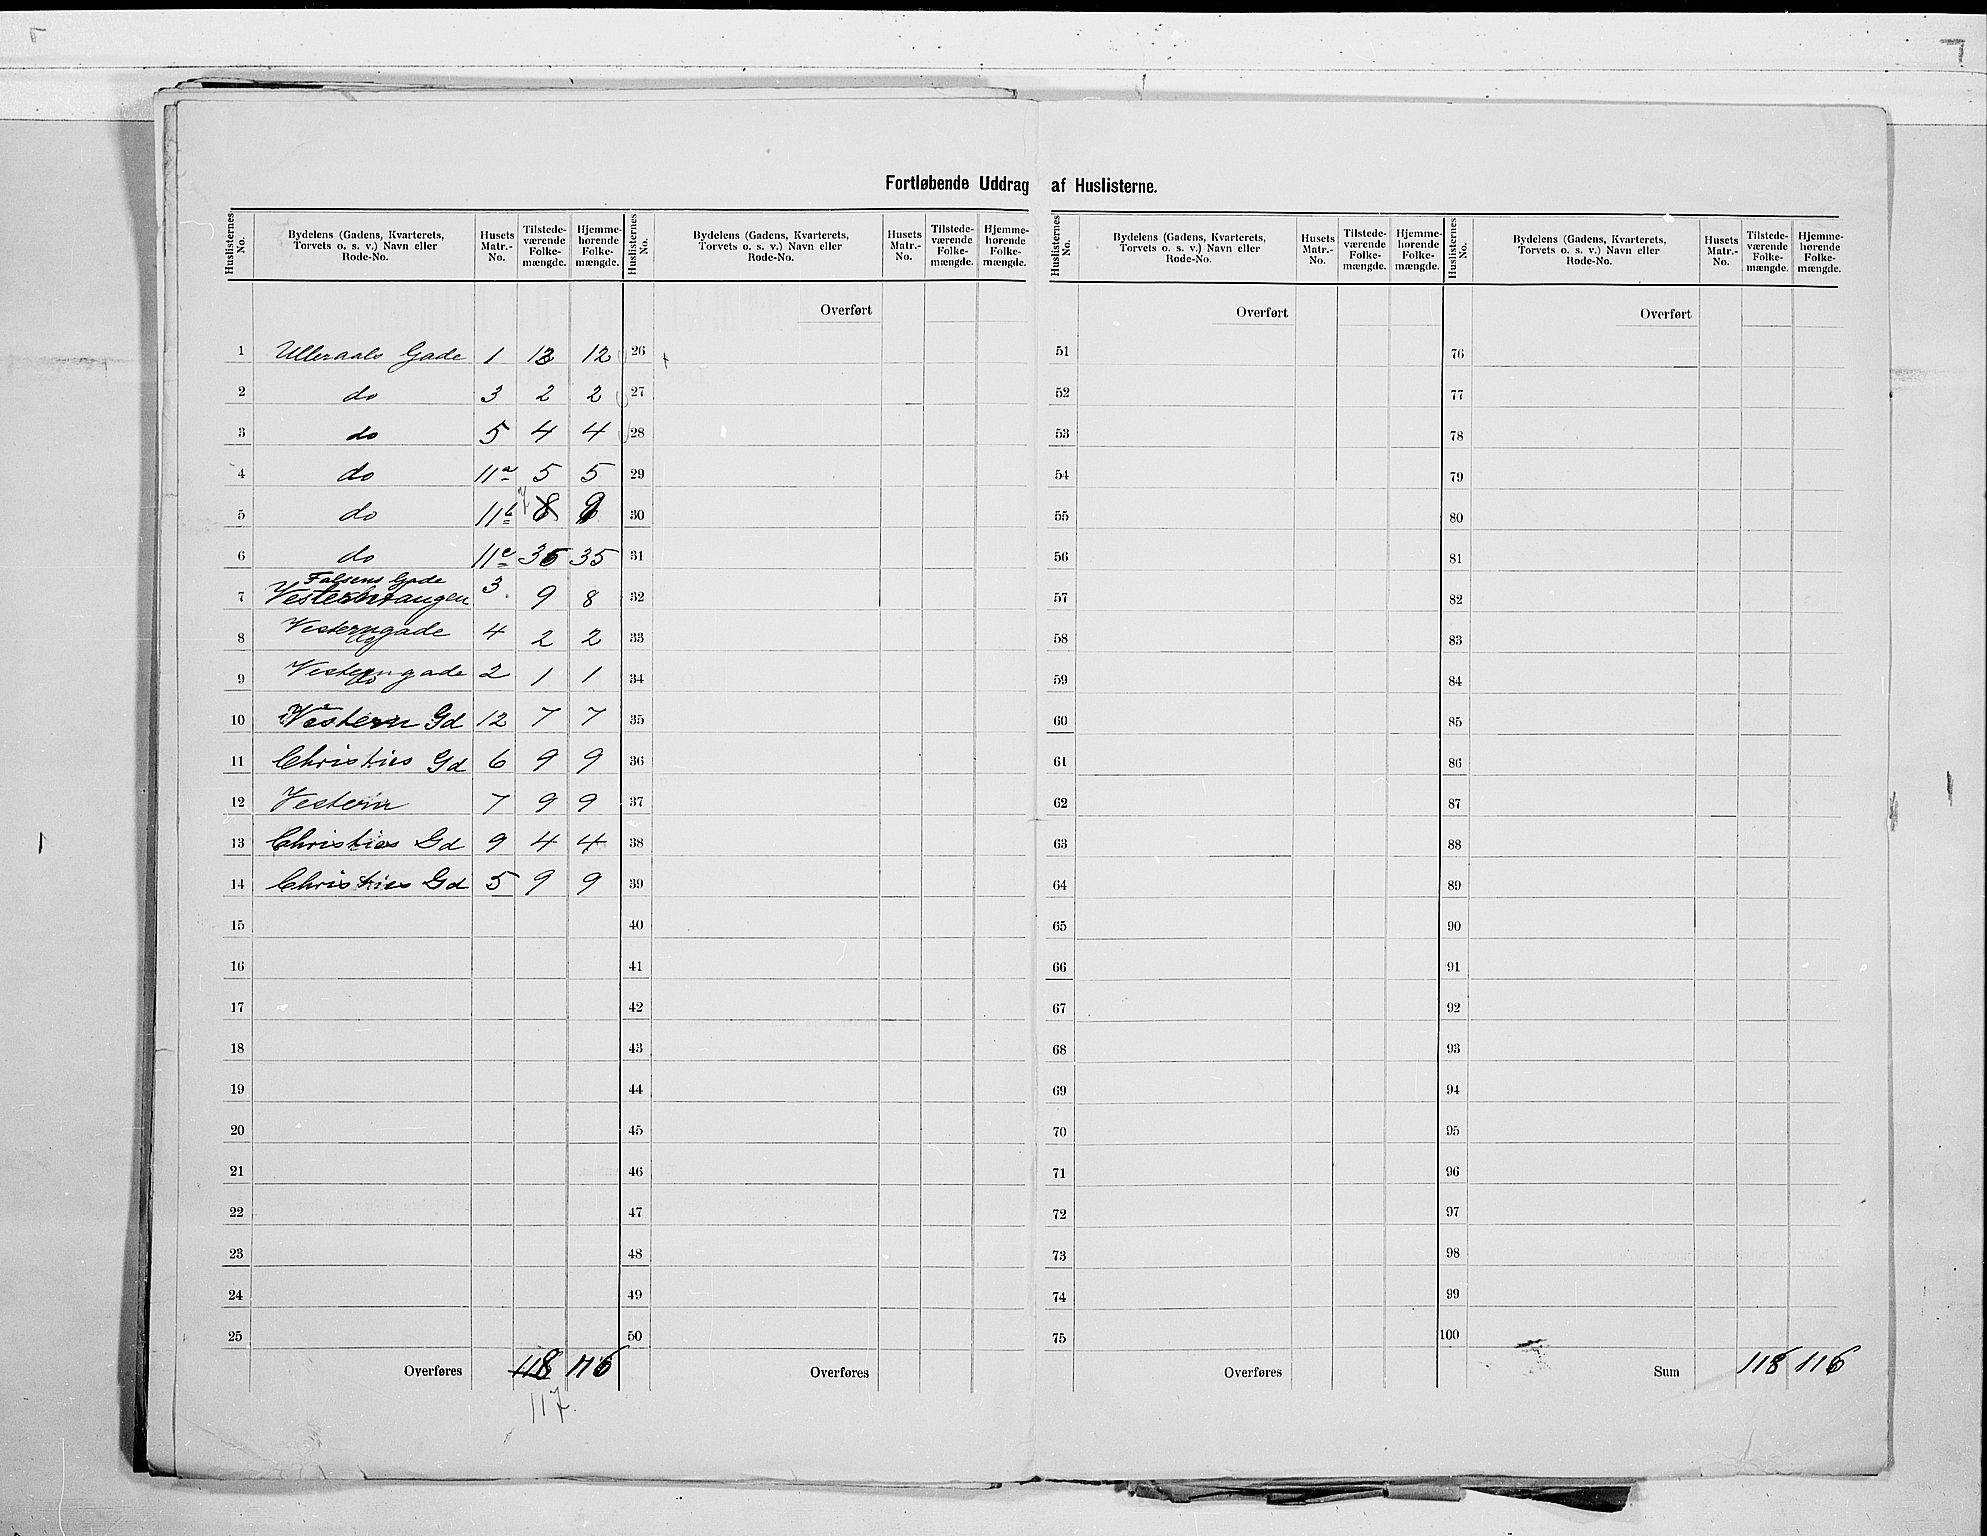 Fortløbende Uddrag af Huslisterne.
Huslisternes No. Bydelens (Gadens, Kvarterets, Torvets o. s. v.) Navn eller Rode-No. Husets Matr.-No. Tilstede-værende Folke-mængde. Hjemme-hørende Folke-mængde. Huslisternes No. Bydelens (Gadens, Kvarterets, Torvets o. s. v.) Navn eller Rode-No. Husets Matr.-No. Tilstede-værende Folke-mængde. Hjemme-hørende Folke-mængde. Huslisternes No. Bydelens (Gadens, Kvarterets, Torvets o. s. v.) Navn eller Rode-No. Husets Matr.-No. Tilstede-værende Folke-mængde. Hjemme-hørende Folke-mængde. Huslisternes No. Bydelens (Gadens, Kvarterets, Torvets o. s. v.) Navn eller Rode-No. Husets Matr.-No. Tilstede-værende Folke-mængde. Hjemme-hørende Folke-mængde.
Overført Overført Overført
1 Ulleraals Gade 1 13 12 26 51 76
2 do 3 2 2 27 52 77
3 do 5 4 4 28 53 78
4 do 11a 5 5 29 54 79
5 do 11b 7 8 9 30 55 80
6 do 11c 36 35 31 56 81
Falsens Gade
7 3 9 8 32 57 82
8 Vesterngade 4 2 2 33 58 83
9 Vesterngade 2 1 1 34 59 84
10 Vestern Gd 12 7 7 35 60 85
11 Christies Gd 6 9 9 36 61 86
12 Vestern 7 9 9 37 62 87
13 Christies Gd 9 4 4 38 63 88
14 Christies Gd 5 9 9 39 64 89
15 40 65 90
16 41 66 91
17 42 67 92
18 43 68 93
19 44 69 94
20 45 70 95
21 46 71 96
22 47 72 97
23 48 73 98
24 49 74 99
25 50 75 100
Overføres 118 116 Overføres Overføres Sum 118 116
117.